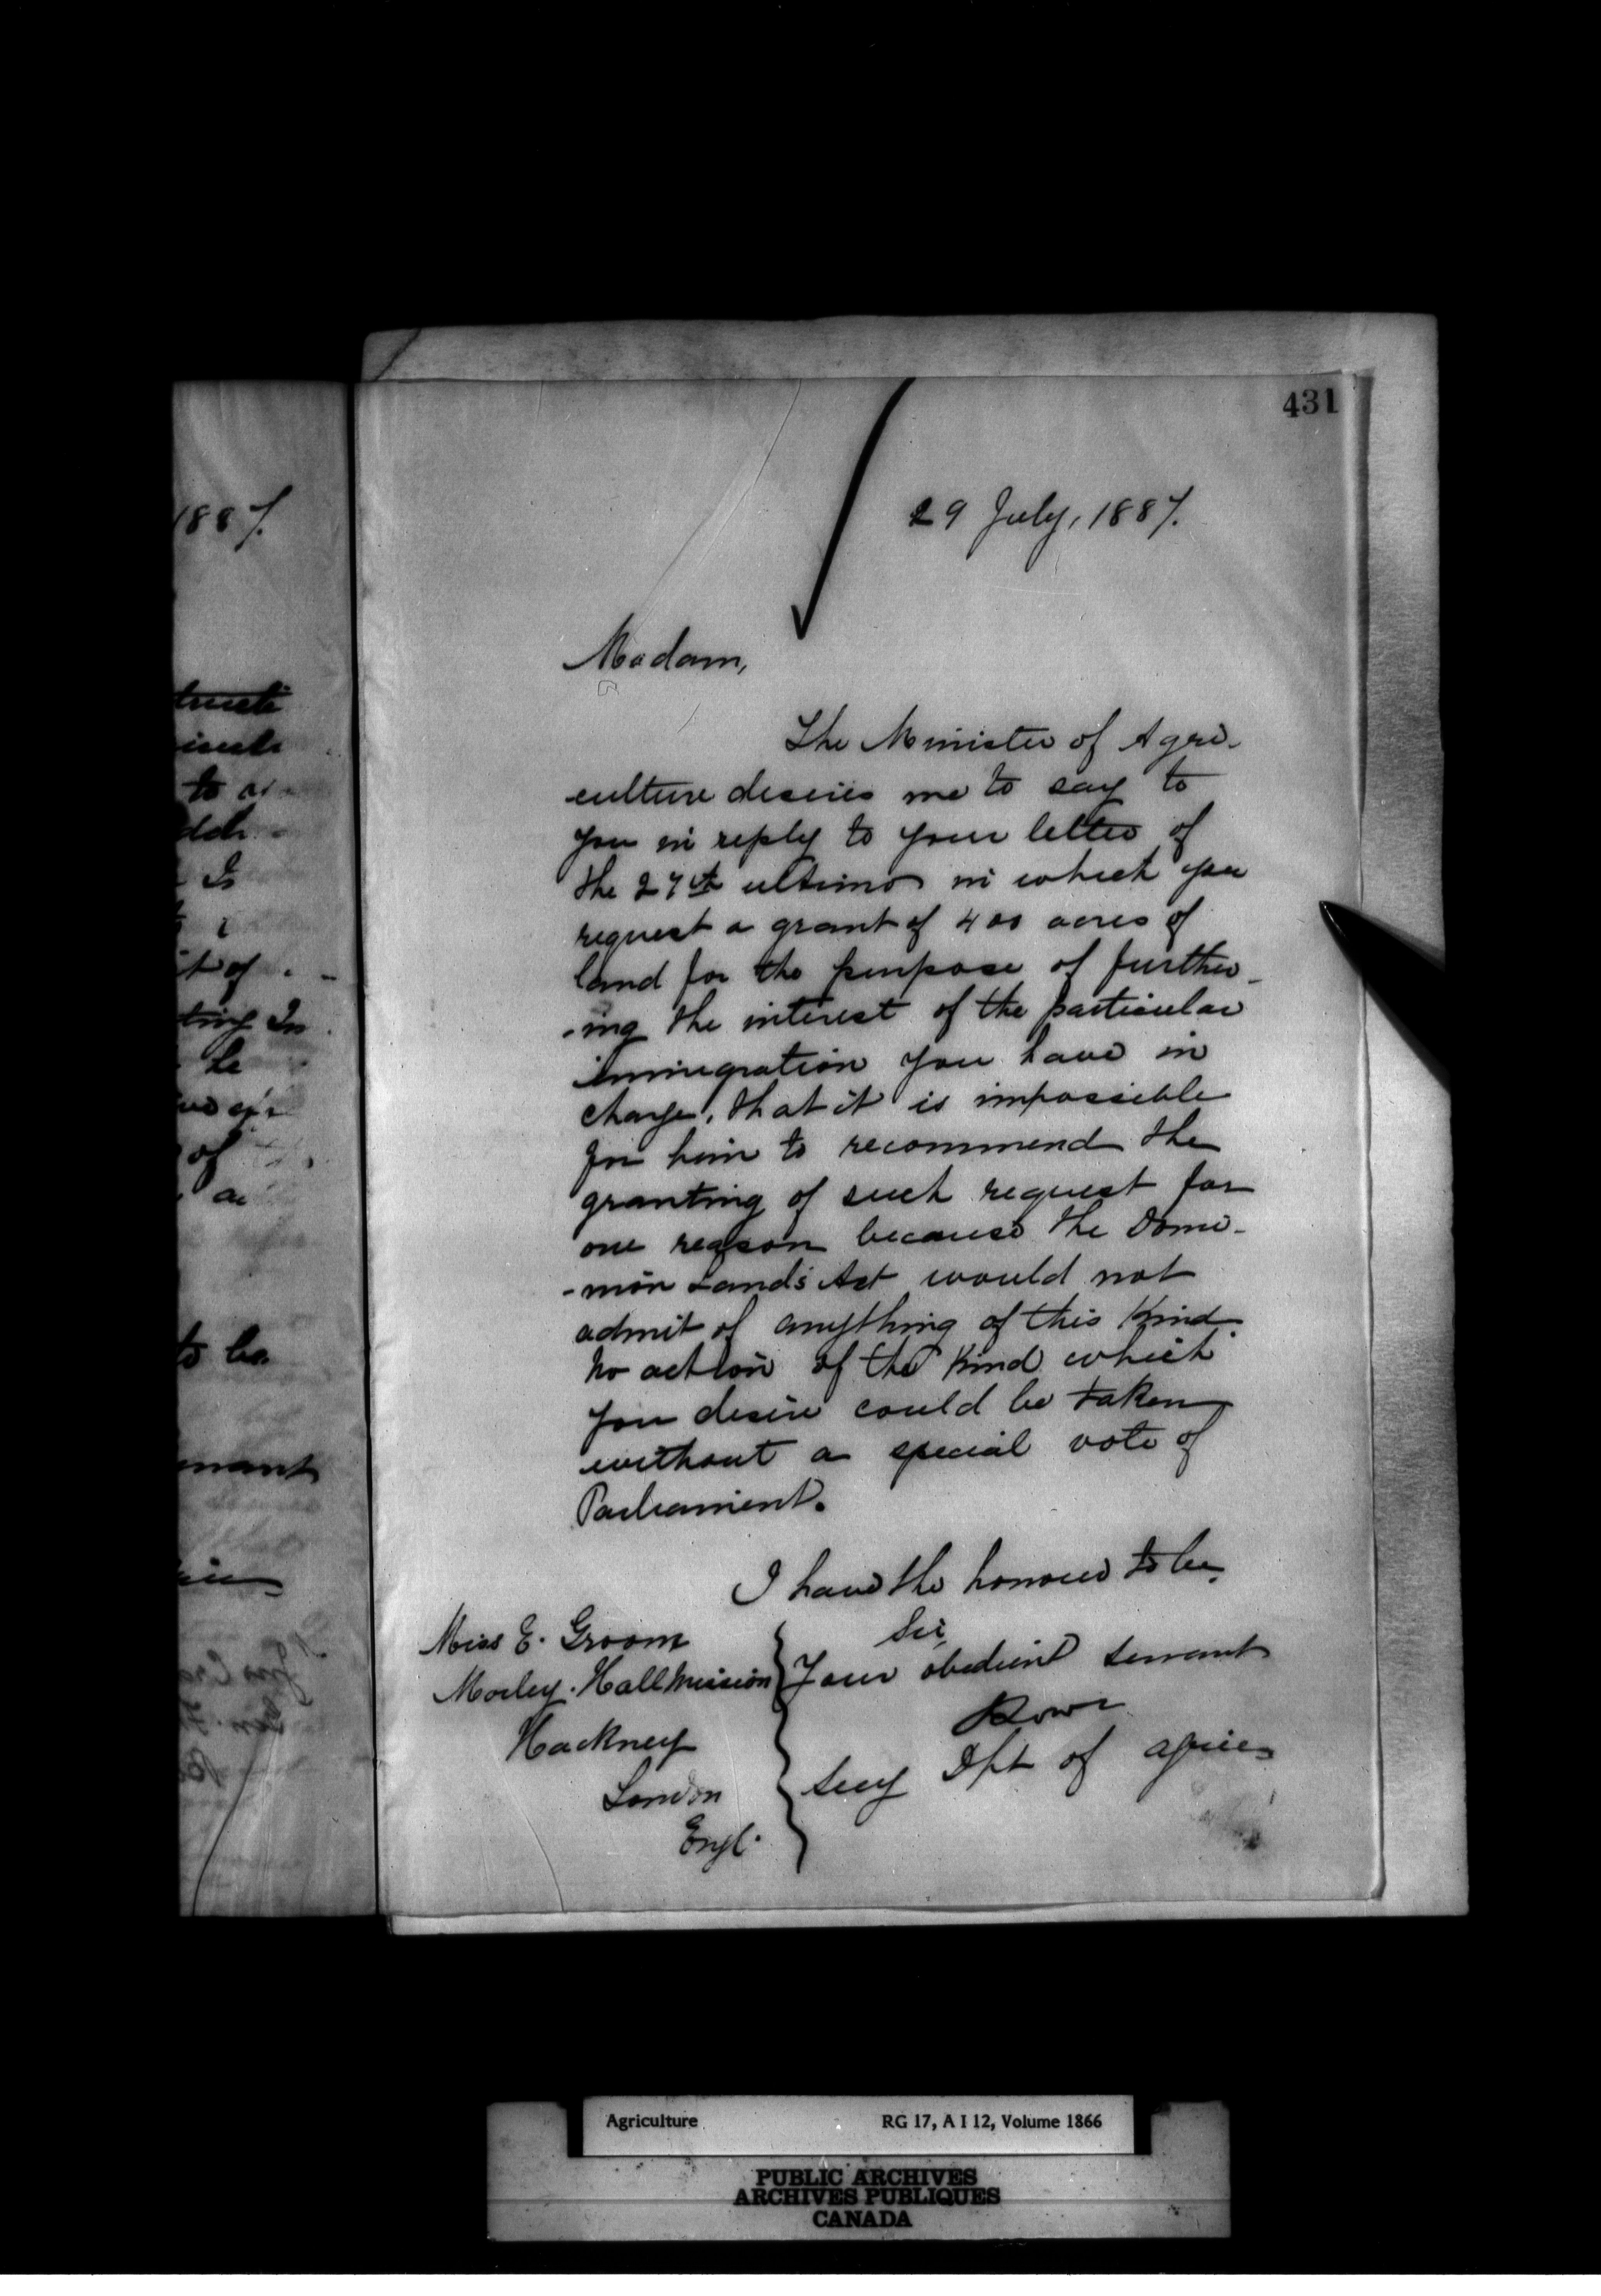 431
29 July, 1887.
Madam,
The Minister of Agri-
-culture desires me to say to
you in reply to your letter of
the 27th ultimo in which you
request a grant of 400 acres of
land for the purpose of further-
-ing the interest of the particular
immigration you have in
charge, that it is impossible
for him to recommend the
granting of such request for
one reason because the Domi-
-nion Lands Act would not
admit of anything of this kind.
No action of the kind which
you desire could be taken
without a special vote of
Parliament.
I have the honour to be,
Sir,
Your obedient servant
Secy Dpt of Agric
Miss E. Groom
Morley Hall Mission
Hackney
London
Engl.
1887.
to be
Agriculture RG 17, A I 12, Volume 1866
PUBLIC ARCHIVES
ARCHIVES PUBLIQUES
CANADA